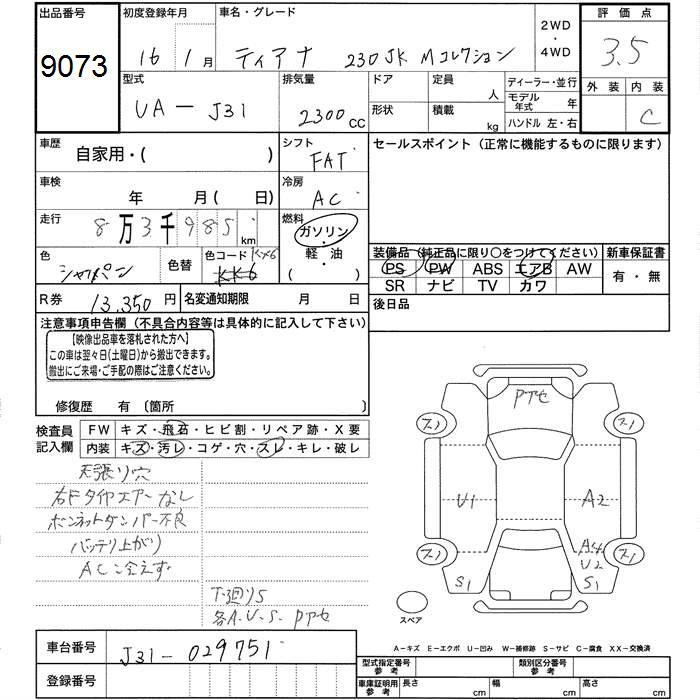 出品番号
9073
初度登録年月
16年 1月
車名・グレード
ティアナ 230JK Mコレクション
2WD
・
4WD
評価点
3.5
外装 内装
C
型式
UA-J31
排気量
2300 CC
ドア
形状
定員
人
積載
kg
ディーラー・並行
モデル年式 年
ハンドル 左・右
車歴
自家用・( )
シフト
FAT
セールスポイント(正常に機能するものに限ります)
車検
年 月( 日)
冷房
AC
走行
8万3千985 km
燃料
ガソリン
・
軽・油
( )
色
シャンパン
色替
色コード KX6
KK6
装備品(純正品に限り○をつけてください)
PS PW ABS エアB AW
SR ナビ TV カワ
新車保証書
有・無
R券
13,350 円
名変通知期限
月 日
後日品
注意事項申告欄(不具合内容等は具体的に記入して下さい)
【映像出品車を落札された方へ】
この車は翌々日(土曜日)から搬出できます。
搬出にご来場・ご手配の際はご注意ください。
修復歴 有〔箇所 〕
検査員
記入欄
FW キズ・飛石・ヒビ割・リペア跡・X要
内装 キズ・汚レ・コゲ・穴・スレ・キレ・破レ
天張り穴
右Fタイヤエアーなし
ボンネットダンパー不良
バッテリ上がり
AC冷えず
下廻りS
各A.U.S.Pアセ
Pアセ
U1
A2
A4
U2
S1
S1
スペア
A-キズ E-エクボ U-凹み W-補修跡 S-サビ C-腐食 XX-交換済
車台番号
J31-029751
登録番号
型式指定番号
参考
類別区分番号
参考
車庫証明用
参考
長さ cm
幅 cm
高さ cm